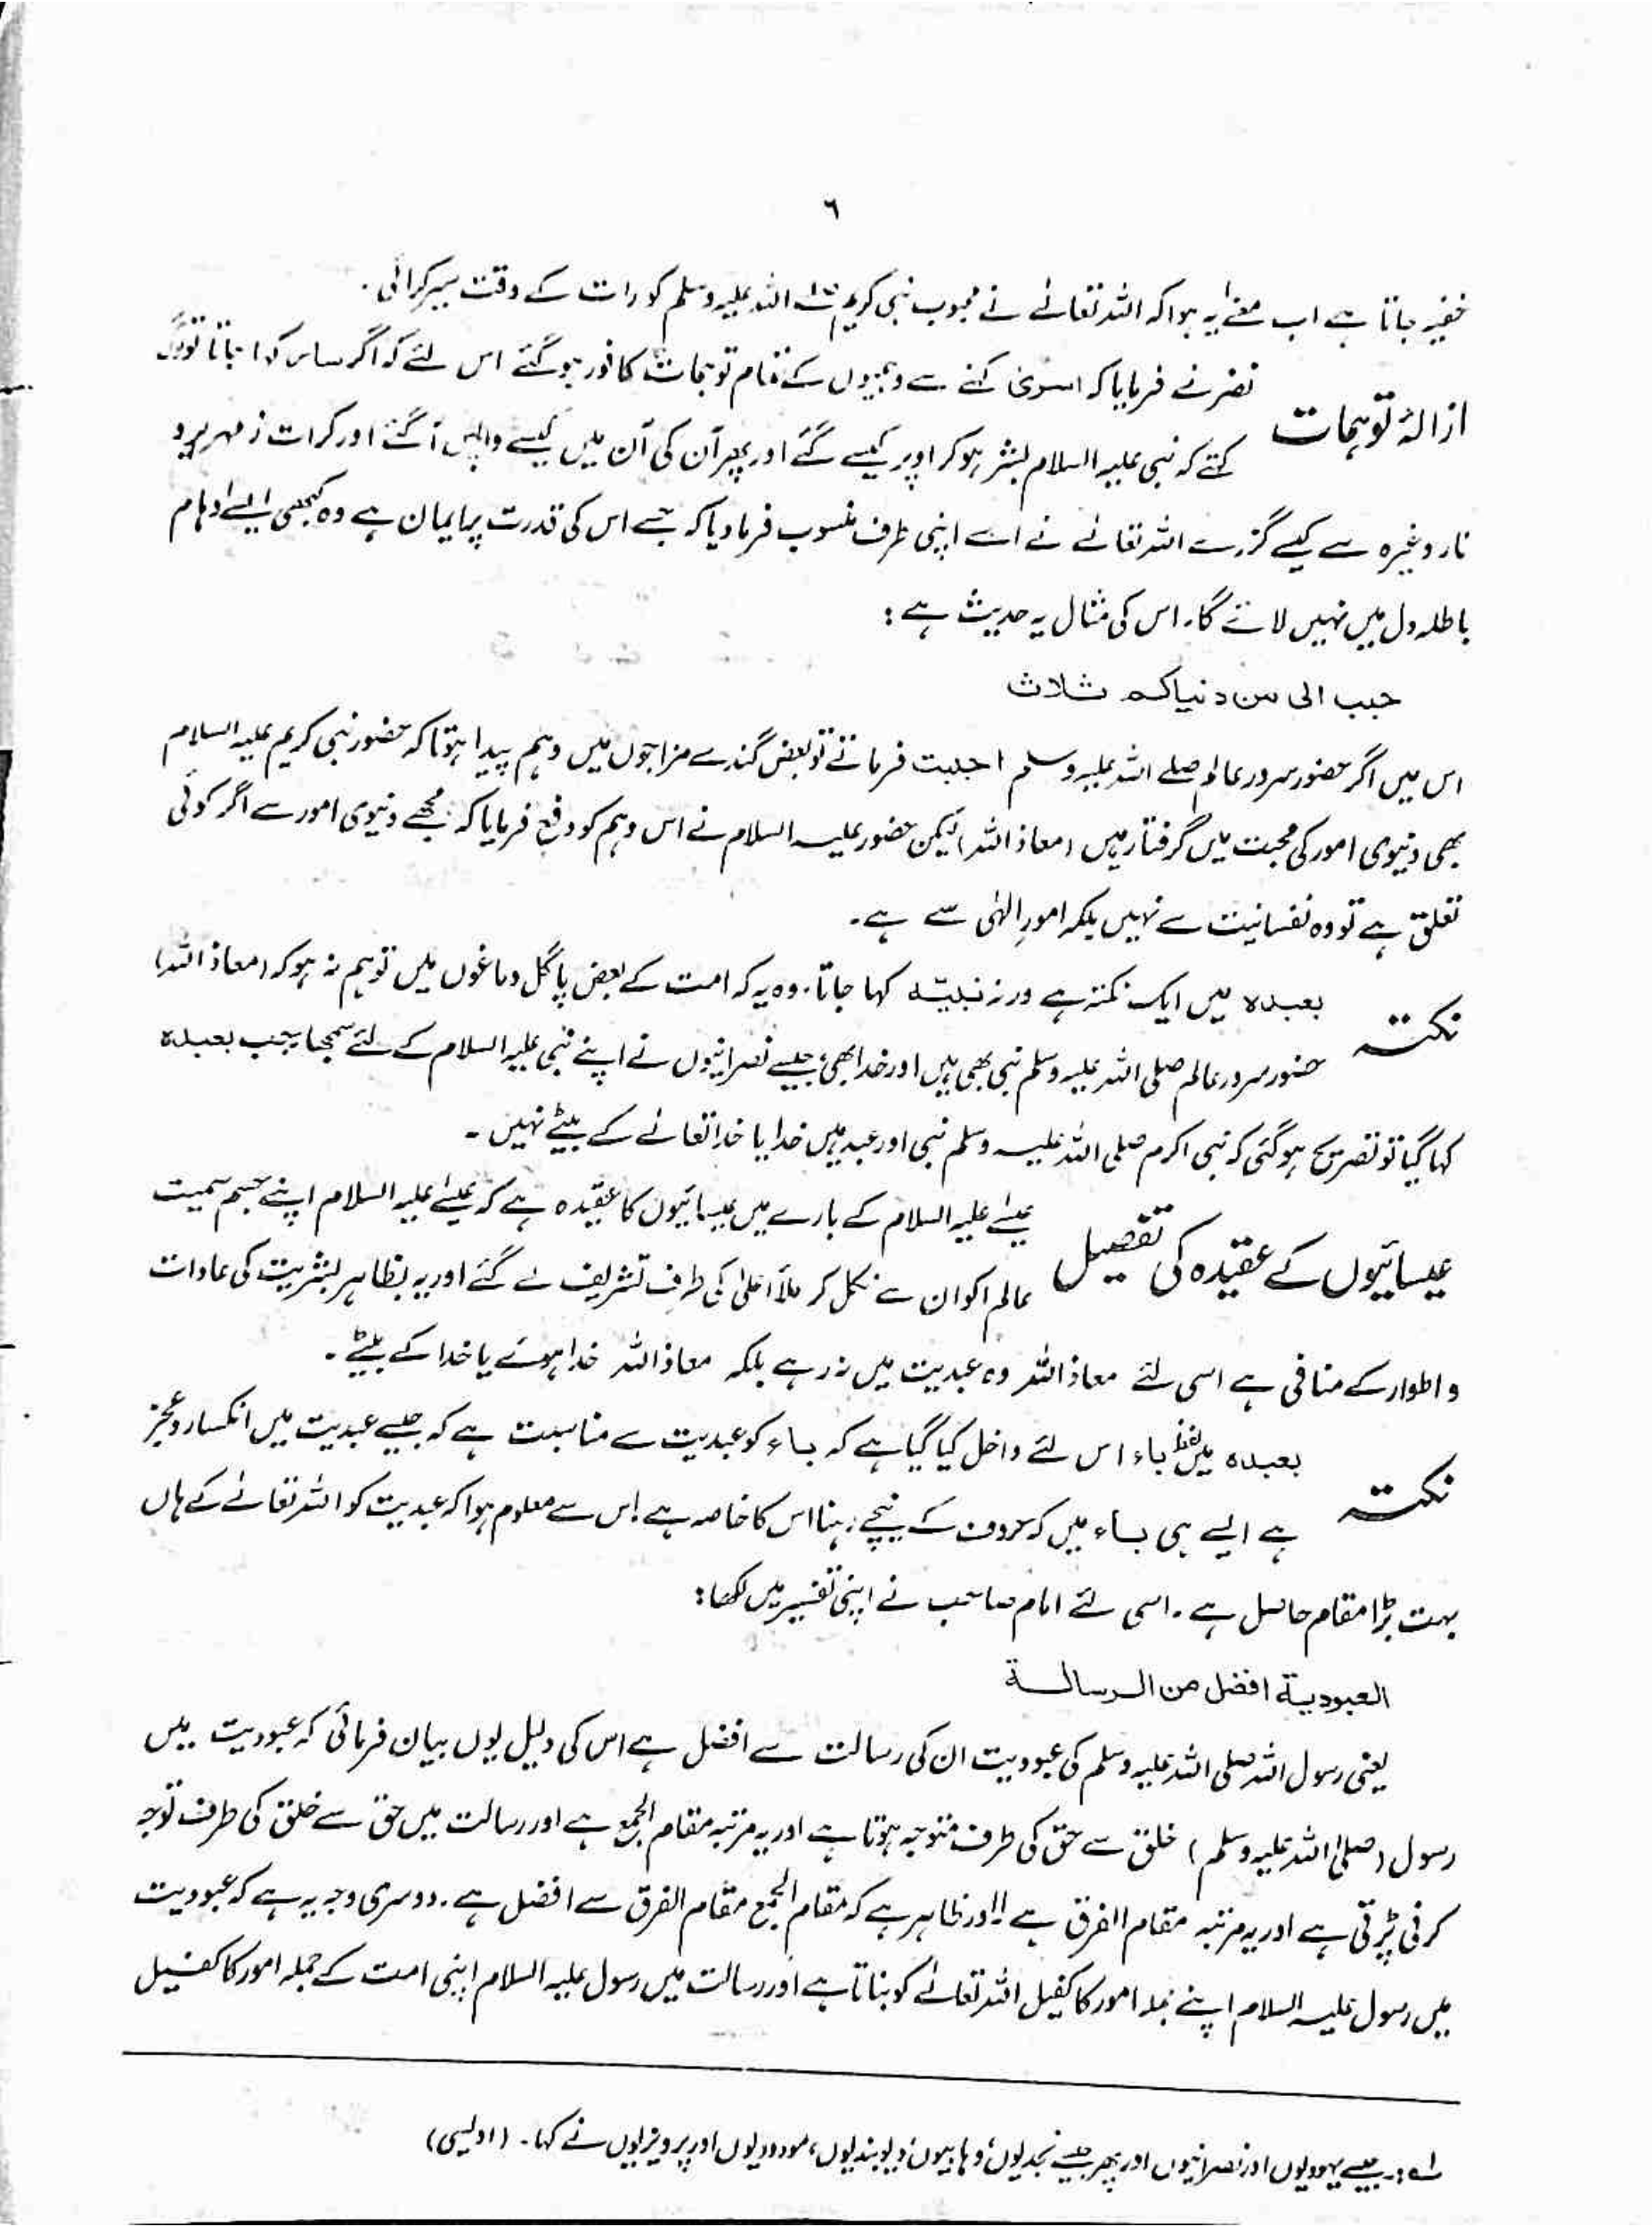 ٦
خفیہ جاتا ہے اب معنیٰ یہ ہوا کہ اللہ تعالےٰ نے محبوب نبی کریم صلے اللہ علیہ وسلم کو رات کے وقت سیر کرائی ۔
ازالۂ توہمات
نضر نے فرمایا کہ اسریٰ کہنے سے وہمیوں کے تمام توہمات کافور ہو گئے اس لئے کہ اگر ساس کہا جاتا تو لوگ
کہتے کہ نبی علیہ السلام بشر ہو کر اوپر کیسے گئے اور پھر آن کی آن میں کیسے واپس آ گئے اور کرات زمہریر و
نار وغیرہ سے کیسے گزرے اللہ تعالےٰ نے اسے اپنی طرف منسوب فرما دیا کہ جسے اس کی قدرت پر ایمان ہے وہ کبھی ایسے اوہام
باطلہ دل میں نہیں لائے گا، اس کی مثال یہ حدیث ہے :
حبب الی من دنیاکم ثلاث
اس میں اگر حضور سرور عالم صلے اللہ علیہ وسلم احببت فرماتے تو بعض گندے مزاجوں میں وہم پیدا ہوتا کہ حضور نبی کریم علیہ السلام
بھی دنیوی امور کی محبت میں گرفتار ہیں (معاذ اللہ) لیکن حضور علیہ السلام نے اس وہم کو دفع فرمایا کہ مجھے دنیوی امور سے اگر کوئی
تعلق ہے تو وہ نفسانیت سے نہیں بلکہ امورِ الٰہی سے ہے۔
نکتہ
بعبدہ میں ایک نکتہ ہے ورنہ نبیہ کہا جاتا، وہ یہ کہ امت کے بعض پاگل دماغوں میں توہم نہ ہو کہ (معاذ اللہ)
حضور سرور عالم صلی اللہ علیہ وسلم نبی بھی ہیں اور خدا بھی، جیسے نصرانیوں نے اپنے نبی علیہ السلام کے لئے سمجھا۔ جب بعبدہ
کہا گیا تو تصریح ہو گئی کہ نبی اکرم صلی اللہ علیہ وسلم نبی اور عبد ہیں خدا یا خدا تعالےٰ کے بیٹے نہیں ۔
عیسائیوں کے عقیدہ کی تفصیل
عیسےٰ علیہ السلام کے بارے میں عیسائیوں کا عقیدہ ہے کہ عیسےٰ علیہ السلام اپنے جسم سمیت
عالم اکوان سے نکل کر ملأ اعلیٰ کی طرف تشریف لے گئے اور یہ بظاہر بشریت کی عادات
و اطوار کے منافی ہے اسی لئے معاذ اللہ وہ عبدیت میں نہ رہے بلکہ معاذ اللہ خدا ہوئے یا خدا کے بیٹے ۔
نکتہ
بعبدہ میں لفظ باء اس لئے داخل کیا گیا ہے کہ باء کو عبدیت سے مناسبت ہے کہ جیسے عبدیت میں انکسار و عجز
ہے ایسے ہی باء میں کہ حروف کے نیچے رہنا اس کا خاصہ ہے اس سے معلوم ہوا کہ عبدیت کو اللہ تعالےٰ کے ہاں
بہت بڑا مقام حاصل ہے ۔ اسی لئے امام صاحب نے اپنی تفسیر میں لکھا :
العبودیۃ افضل من الرسالۃ
یعنی رسول اللہ صلی اللہ علیہ وسلم کی عبودیت ان کی رسالت سے افضل ہے اس کی دلیل یوں بیان فرمائی کہ عبودیت میں
رسول (صلی اللہ علیہ وسلم) خلق سے حق کی طرف متوجہ ہوتا ہے اور یہ مرتبہ مقام الجمع ہے اور رسالت میں حق سے خلق کی طرف توجہ
کرنی پڑتی ہے اور یہ مرتبہ مقام الفرق ہے اور ظاہر ہے کہ مقام الجمع مقام الفرق سے افضل ہے ۔ دوسری وجہ یہ ہے کہ عبودیت
میں رسول علیہ السلام اپنے جملہ امور کا کفیل اللہ تعالےٰ کو بناتا ہے اور رسالت میں رسول علیہ السلام اپنی امت کے جملہ امور کا کفیل
لہ :۔ جیسے یہودیوں اور نصرانیوں اور پھر جیسے نجدیوں، وہابیوں، دیوبندیوں، مودودیوں اور پرویزیوں نے کہا ۔ (اویسی)